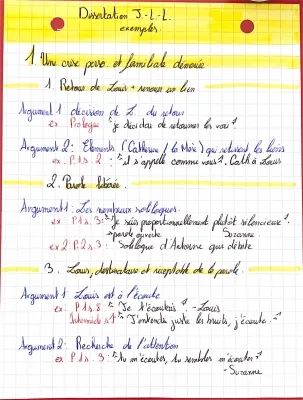 Dissertation J-L-L.
exemples.
1 Une crise perso. et familiale dénouée
1. Retour de Louis = renouer un lien
Argument 1 décision de L. du retour
ex: Prologue "je décidai de retourner les voir"
Argument 2: Elements (Catherine / le Mère) qui relient les liens
ex: P.1 s.2: "il s'appelle comme vous". Cath à Louis
2. Parole libérée.
Argument 1: Les nombreux soliloques.
ex: P.1 s. 3: "Je suis proportionnellement plutôt silencieuse".
→ parole ouverte Suzanne
ex 2: P.2 s.3: Soliloque d'Antoine qui débute
3. Louis, destinataire et réceptacle de la parole.
Argument 1 Louis est à l'écoute
ex: P.1 s.8: "Je t'écoutais". - Louis
Intermède s.1: "J'entends juste les bruits, j'écoute."
Argument 2: Recherche de l'attention
ex: P.1 s. 3: "tu m'écoutes, tu sembles m'écouter"
- Suzanne